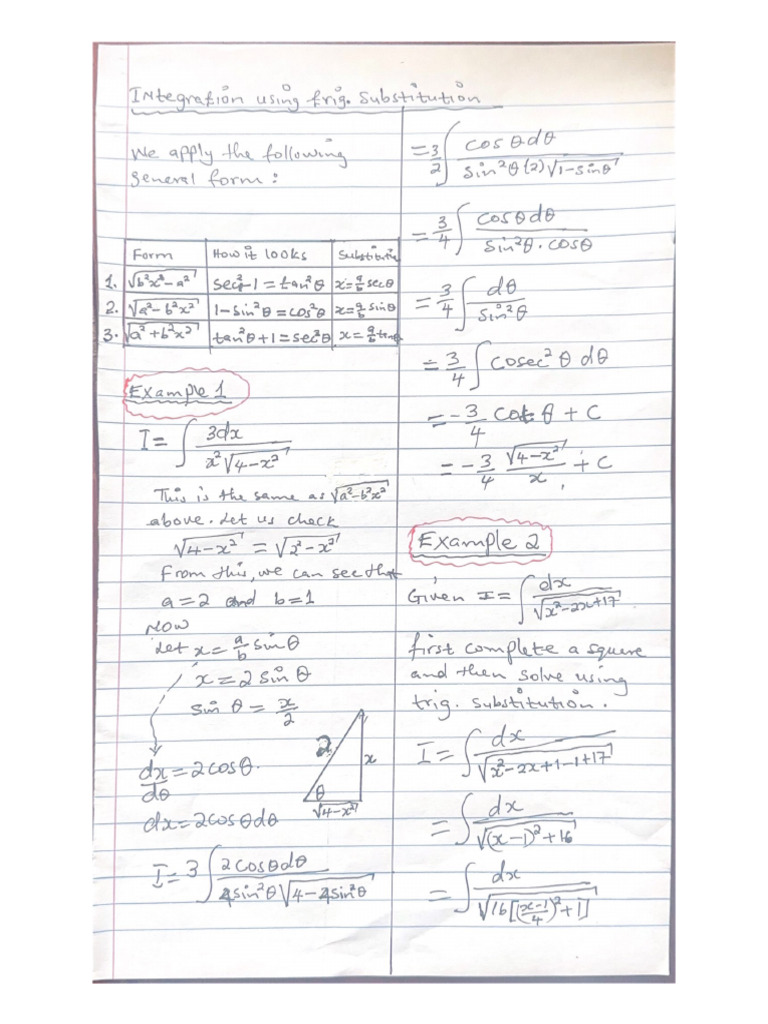 Integration using trig. Substitution
We apply the following
general form:
Form | How it looks | Substitutio
1. √(b²x²-a²) | sec²θ-1=tan²θ | x=a/b secθ
2. √(a²-b²x²) | 1-sin²θ=cos²θ | x=a/b sinθ
3. √(a²+b²x²) | tan²θ+1=sec²θ | x=a/b tanθ
Example 1
I= ∫ 3dx / (x²√(4-x²))
This is the same as √(a²-b²x²)
above. Let us check
√(4-x²) = √(2²-x²)
From this, we can see that
a=2 and b=1
Now
Let x= a/b sinθ
x=2sinθ
sinθ = x/2
2
x
θ
√(4-x²)
dx/dθ=2cosθ.
dx=2cosθdθ
I= 3∫ 2cosθdθ / (4sin²θ√(4-4sin²θ))
= 3/2 ∫ cosθdθ / (sin²θ(2)√(1-sin²θ))
= 3/4 ∫ cosθdθ / (sin²θ.cosθ)
= 3/4 ∫ dθ / sin²θ
= 3/4 ∫ cosec²θ dθ
= -3/4 cot θ + C
= -3/4 √(4-x²)/x + C
Example 2
Given I= ∫ dx / √(x²-2x+17)
first complete a square
and then solve using
trig. substitution.
I= ∫ dx / √(x²-2x+1-1+17)
= ∫ dx / √((x-1)²+16)
= ∫ dx / √(16[((x-1)/4)²+1])